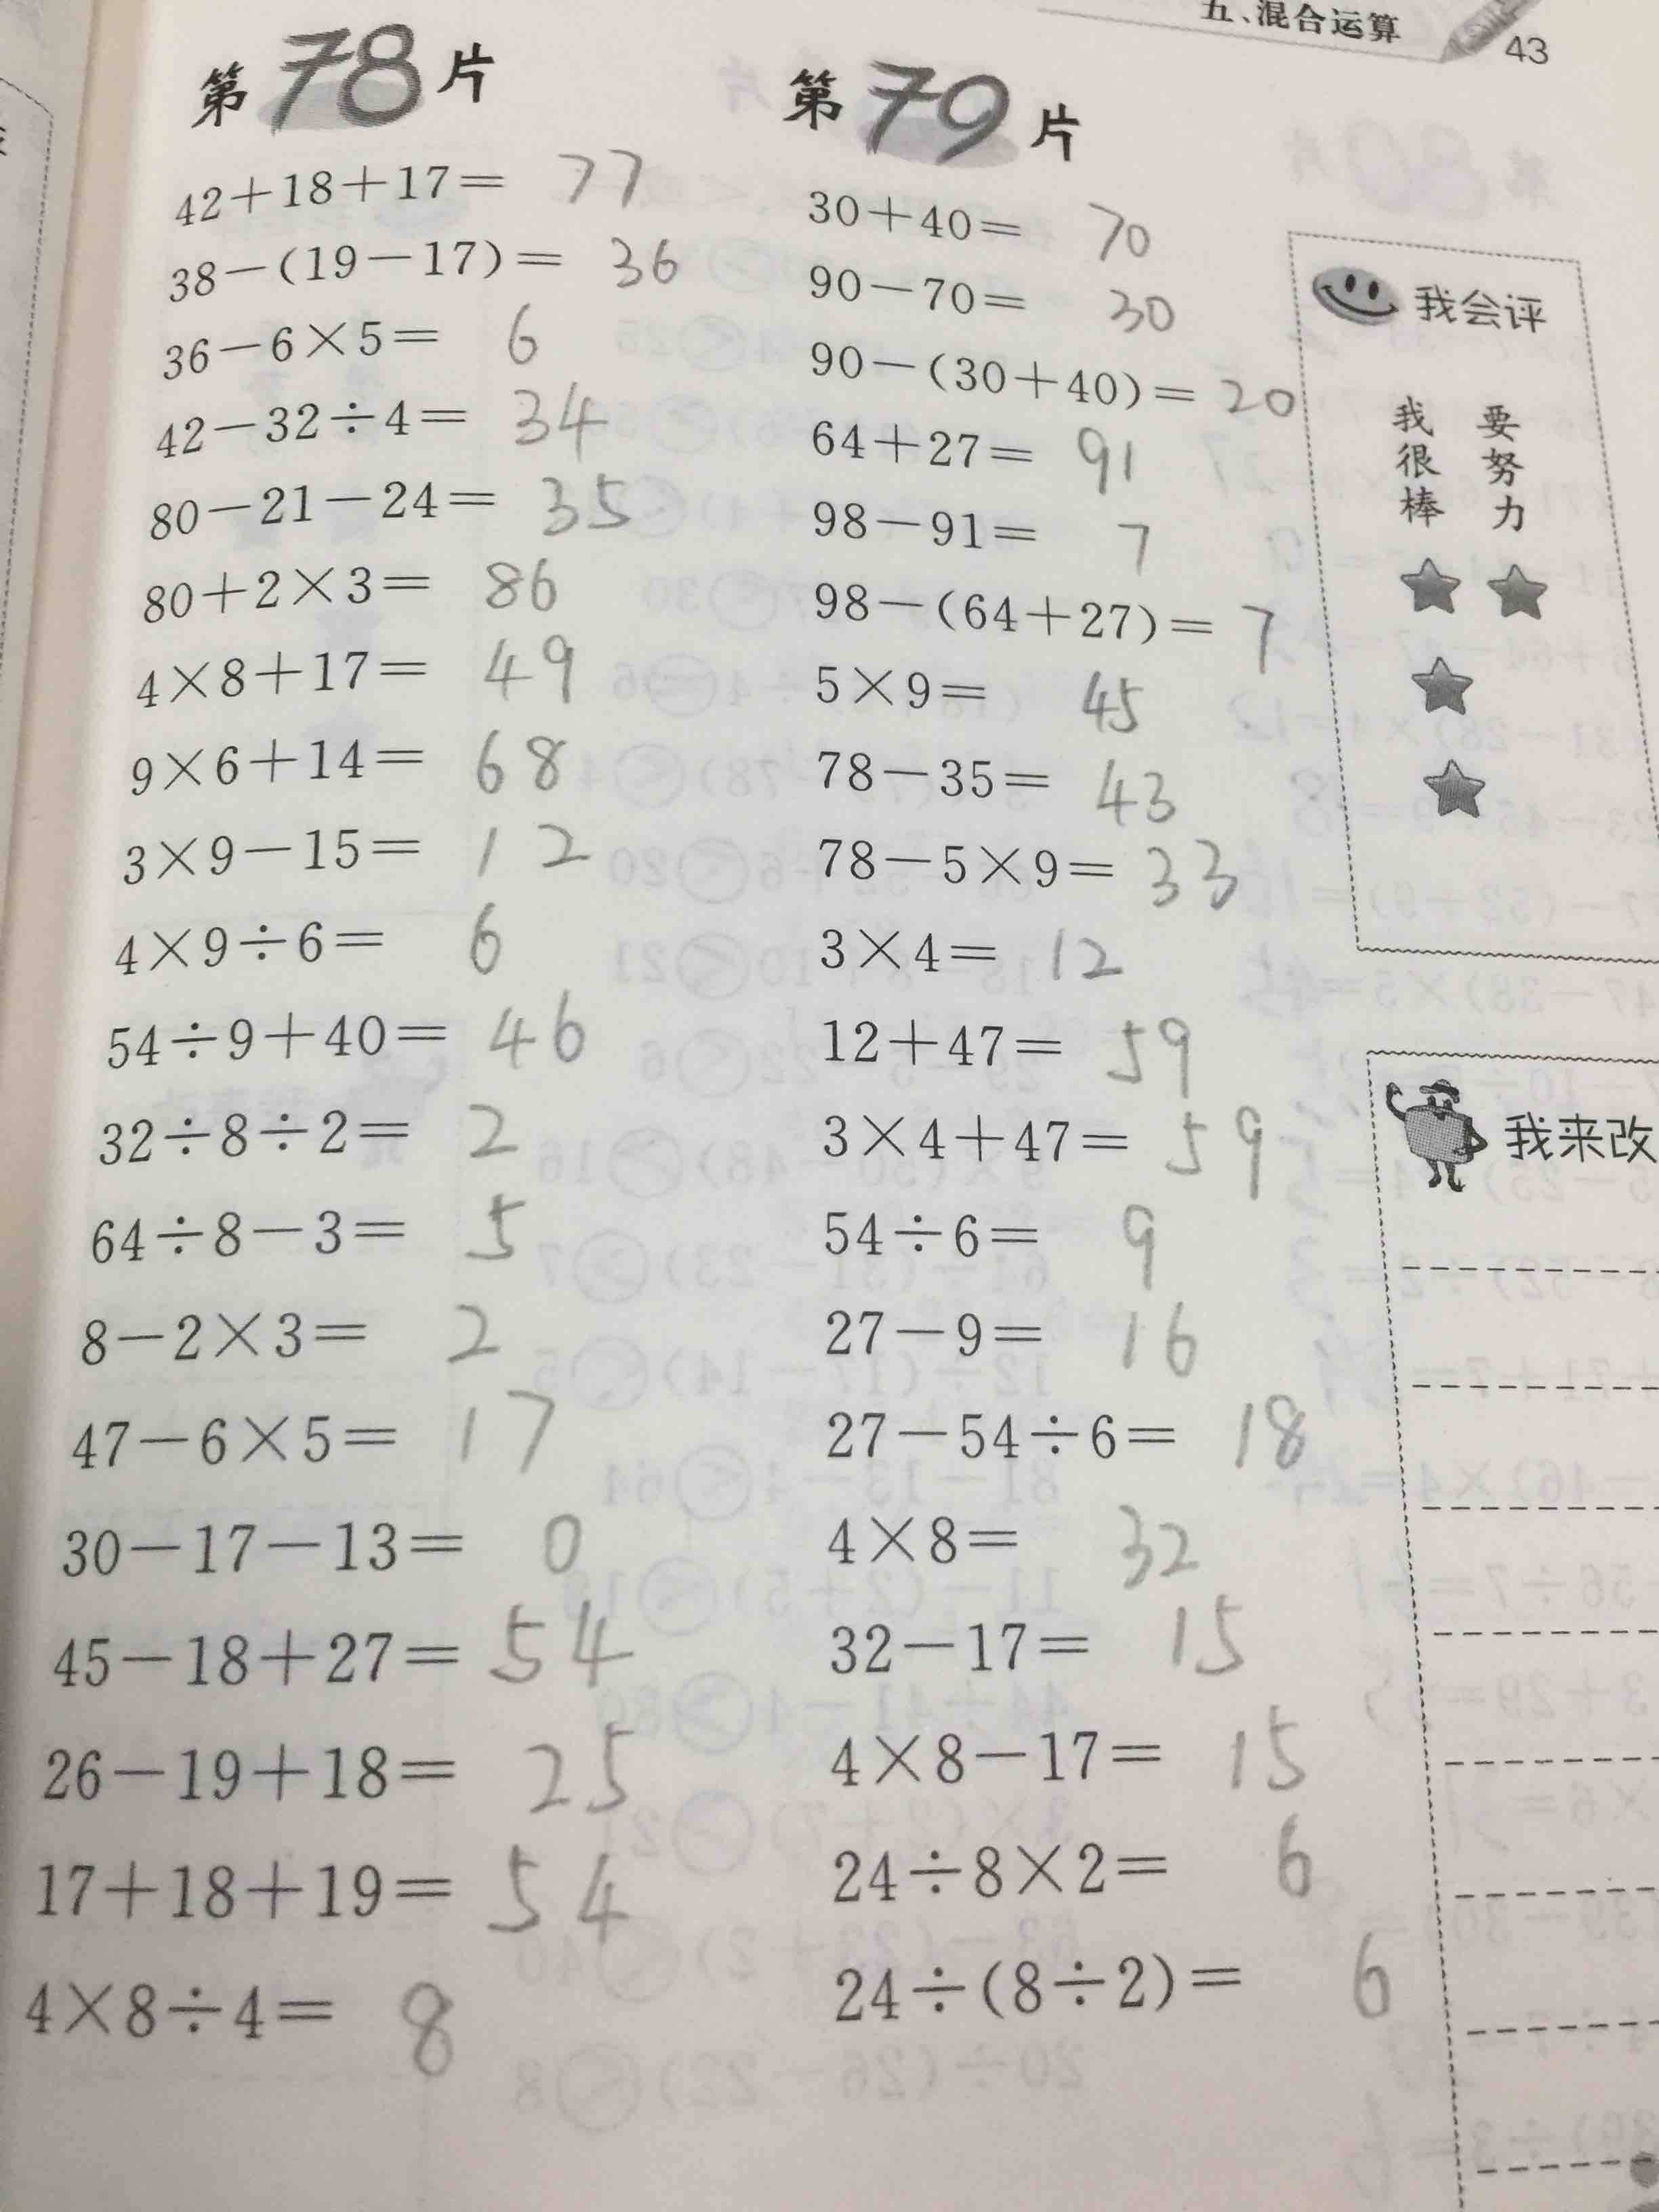 五、混合运算 43
第78片
42+18+17= 77
38-(19-17)= 36
36-6×5= 6
42-32÷4= 34
80-21-24= 35
80+2×3= 86
4×8+17= 49
9×6+14= 68
3×9-15= 12
4×9÷6= 6
54÷9+40= 46
32÷8÷2= 2
64÷8-3= 5
8-2×3= 2
47-6×5= 17
30-17-13= 0
45-18+27= 54
26-19+18= 25
17+18+19= 54
4×8÷4= 8
第79片
30+40= 70
90-70= 30
90-(30+40)= 20
64+27= 91
98-91= 7
98-(64+27)= 7
5×9= 45
78-35= 43
78-5×9= 33
3×4= 12
12+47= 59
3×4+47= 59
54÷6= 9
27-9= 16
27-54÷6= 18
4×8= 32
32-17= 15
4×8-17= 15
24÷8×2= 6
24÷(8÷2)= 6
我会评
我很棒
要努力
我来改